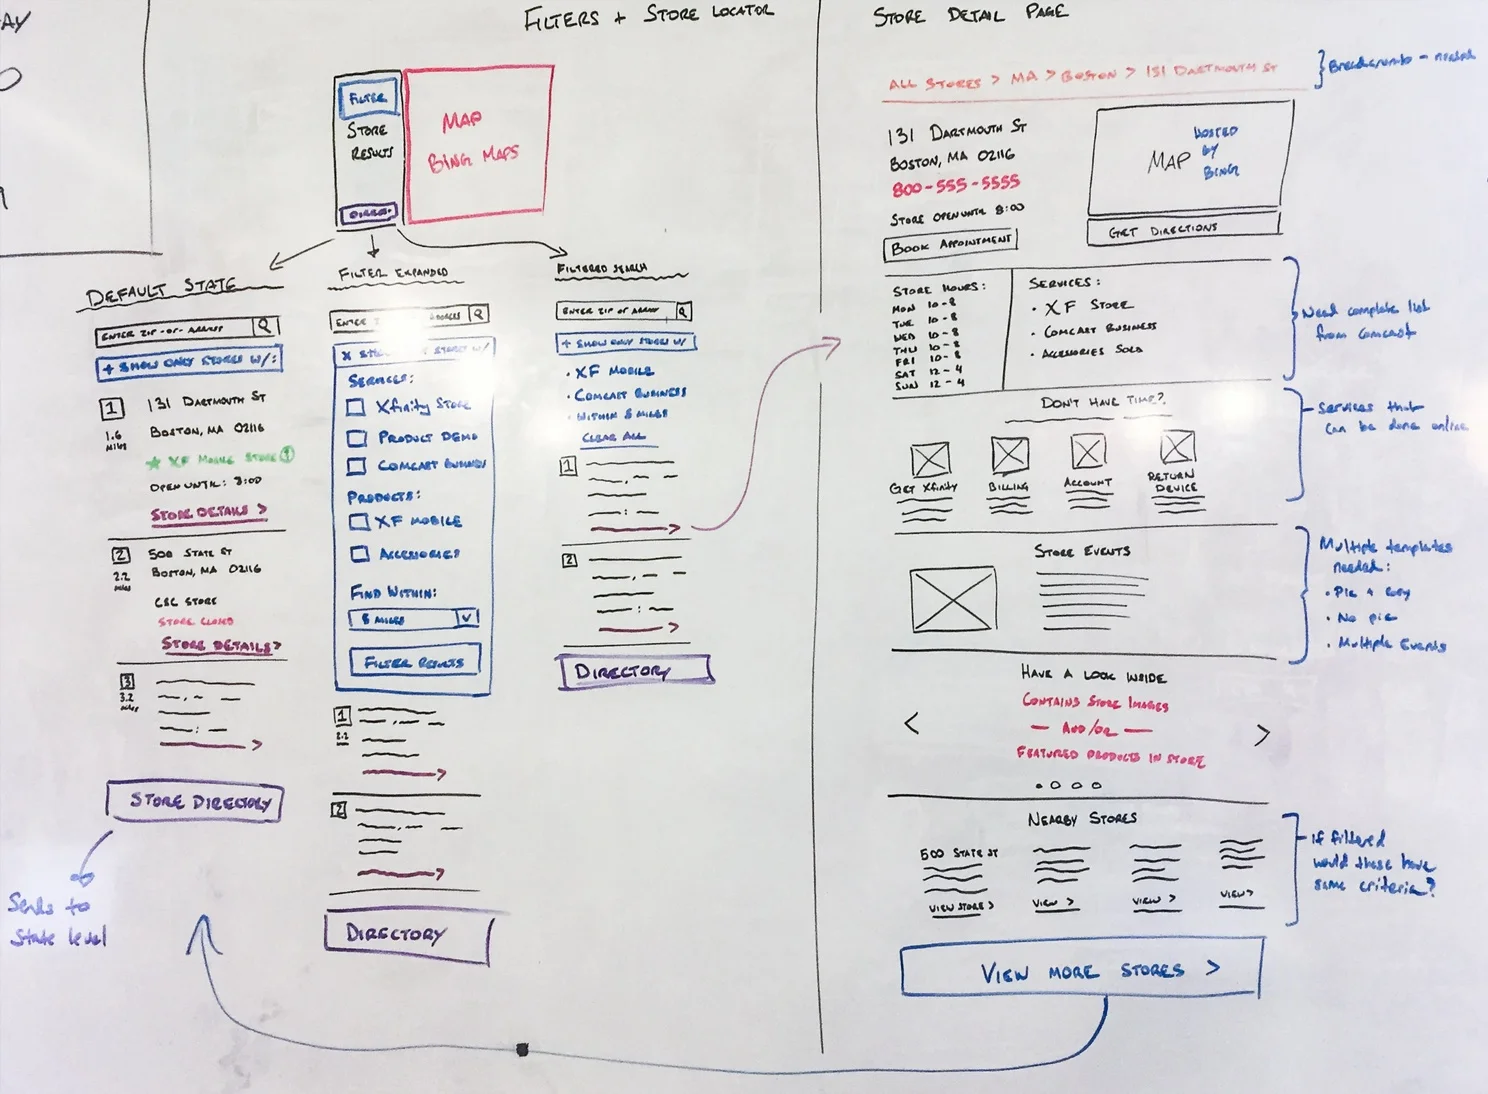 AY
FILTERS + STORE LOCATOR
FILTER
STORE
RESULTS
MAP
BING MAPS
DEFAULT STATE
ENTER ZIP -OR- ADDRESS
+ SHOW ONLY STORES W/:
1
1.6
MILES
131 DARTMOUTH ST
BOSTON, MA 02116
★ XF MOBILE STORE
OPEN UNTIL: 8:00
STORE DETAILS >
2
2.2
MILES
500 STATE ST
BOSTON, MA 02116
STORE CLOSED
STORE DETAILS >
3
3.2
MILES
STORE DIRECTORY
Sends to
State level
FILTER EXPANDED
ENTER
X
STORES W/
SERVICES:
Xfinity STORE
PRODUCT DEMO
COMCAST BUSINESS
PRODUCTS:
XF MOBILE
ACCESSORIES
FIND WITHIN:
5 MILES
FILTER RESULTS
1
2.2
2
DIRECTORY
FILTERED SEARCH
ENTER ZIP OR ADDRESS
+ SHOW ONLY STORES W/
• XF MOBILE
• COMCAST BUSINESS
• WITHIN 5 MILES
CLEAR ALL
1
2
DIRECTORY
STORE DETAIL PAGE
ALL STORES > MA > BOSTON > 131 DARTMOUTH ST
Breadcrumbs - needed
131 DARTMOUTH ST
BOSTON, MA 02116
800-555-5555
STORE OPEN UNTIL 8:00
BOOK APPOINTMENT
MAP
HOSTED
BY
BING
GET DIRECTIONS
STORE HOURS:
MON 10-8
TUE 10-8
WED 10-8
THU 10-8
FRI 10-8
SAT 12-4
SUN 12-4
SERVICES:
• XF STORE
• COMCAST BUSINESS
• ACCESSORIES SOLD
Need complete list
from comcast
DON'T HAVE TIME?
GET Xfinity
BILLING
ACCOUNT
RETURN
DEVICE
Services that
can be done online
STORE EVENTS
Multiple templates
needed:
• Pic + copy
• No pic
• Multiple Events
HAVE A LOOK INSIDE
CONTAINS STORE IMAGES
— AND/OR —
FEATURED PRODUCTS IN STORE
< >
NEARBY STORES
500 STATE ST
VIEW STORE >
VIEW >
VIEW >
VIEW >
If filtered
would these have
same criteria?
VIEW MORE STORES >